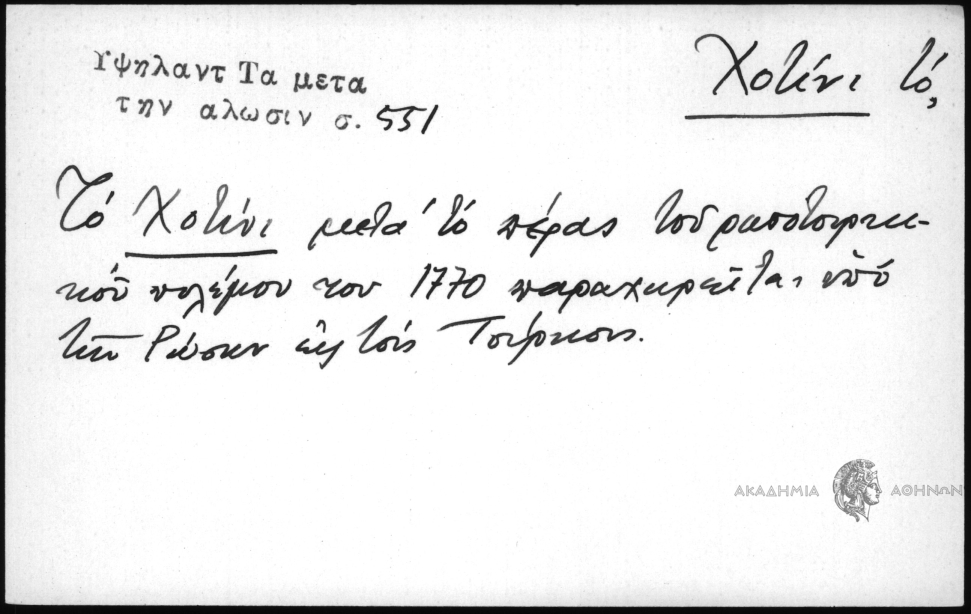 Υψηλαντ Τα μετα
την αλωσιν σ. 551
Χοτίνι τό,
Τό Χοτίνι μετά τό πέρας τοῦ ρωσοτουρκι-
κοῦ πολέμου του 1770 παραχωρεῖται ὑπό
τῶν Ρώσων εἰς τούς Τούρκους.
ΑΚΑΔΗΜΙΑ ΑΘΗΝΩΝ